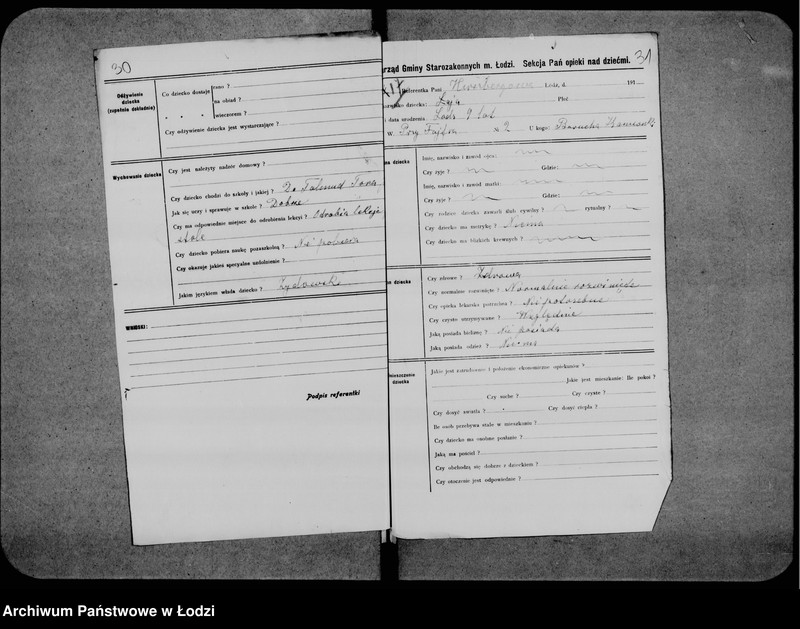 30
Odżywienie
dziecka
(zupełnie dokładnie)
Co dziecko dostaje
rano ?
na obiad ?
wieczorem ?
Czy odżywienie dziecka jest wystarczające ?
Wychowanie dziecka
Czy jest należyty nadzór domowy ?
Czy dziecko chodzi do szkoły i jakiej ? Do Talmud Tora
Jak się uczy i sprawuje w szkole ? Dobrze
Czy ma odpowiednie miejsce do odrobienia lekcyi ? Odrabia lekcje
stole
Czy dziecko pobiera naukę pozaszkolną ? Nie pobiera
Czy okazuje jakieś specyalne uzdolnienie ?
Jakim językiem włada dziecko ? Żydowski
WNIOSKI:
Podpis referentki
31
Zarząd Gminy Starozakonnych m. Łodzi. Sekcja Pań opieki nad dziećmi.
XIV
Referentka Pani Łódź, d. 191
dziecka: Płeć
i data urodzenia Łódź 9 lat
W. № 2 U kogo:
dziecka
Imię, nazwisko i zawód ojca:
Czy żyje ? Gdzie:
Imię, nazwisko i zawód matki:
Czy żyje ? Gdzie:
Czy rodzice dziecka zawarli ślub cywilny ? rytualny ?
Czy dziecko ma metrykę ? Niema
Czy dziecko ma bliskich krewnych ?
dziecka
Czy zdrowe ? Zdrowe
Czy normalnie rozwinięte ? Normalnie rozwinięte
Czy opieka lekarska potrzebna ? Nie potrzebne
Czy czysto utrzymywane ? Względnie
Jaką posiada bieliznę ? Nie posiada
Jaką posiada odzież ? Niema
Umieszczenie
dziecka
Jakie jest zatrudnienie i położenie ekonomiczne opiekunów ?
Jakie jest mieszkanie: Ile pokoi ?
Czy suche ? Czy czyste ?
Czy dosyć światła ? Czy dosyć ciepła ?
Ile osób przebywa stale w mieszkaniu ?
Czy dziecko ma osobne posłanie ?
Jaką ma pościel ?
Czy obchodzą się dobrze z dzieckiem ?
Czy otoczenie jest odpowiednie ?
Archiwum Państwowe w Łodzi